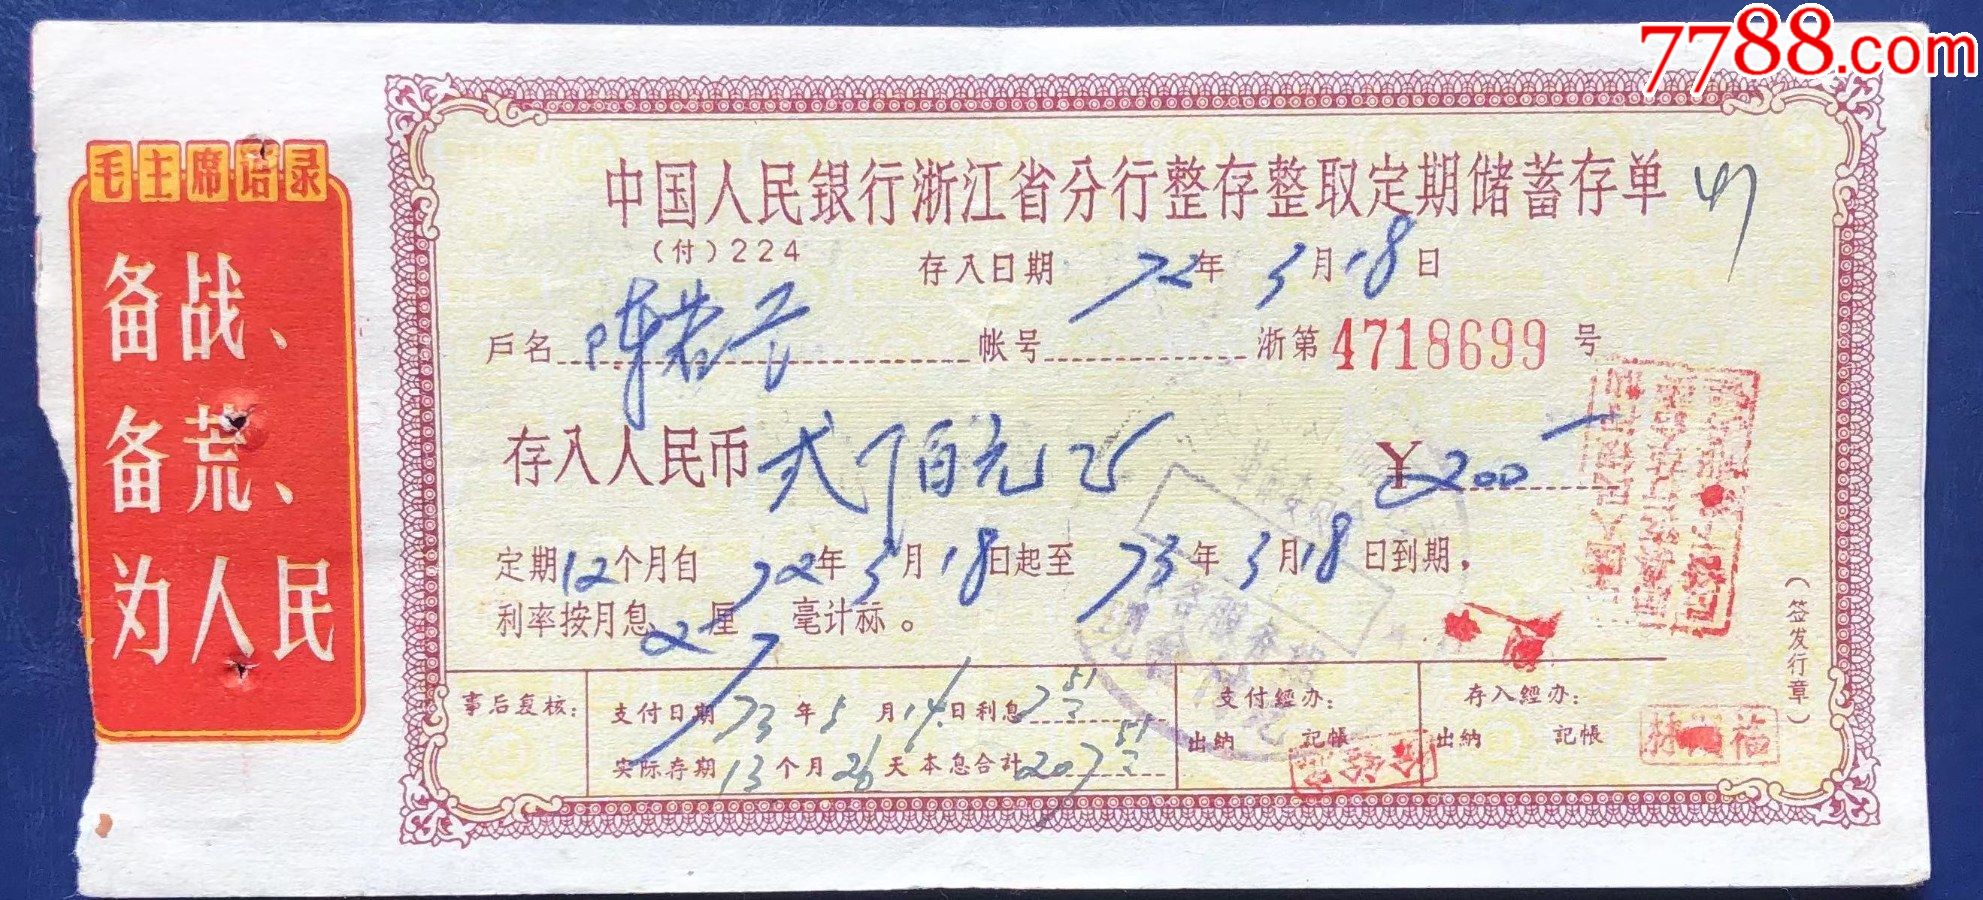 7788.com
毛主席语录
备战、
备荒、
为人民
中国人民银行浙江省分行整存整取定期储蓄存单
(付)224
存入日期 72年3月18日
户名 陈 帐号 浙第4718699号
存入人民币 贰佰元正 ¥200
定期12个月自72年3月18日起至73年3月18日到期。
利率按月息 2厘 毫计标。
(签发行章)
事后复核:
支付日期73年5月14日利息7 51
实际存期13个月26天本息合计207 51
支付經办:
出纳 記帳
存入經办:
出纳 記帳
林 祐